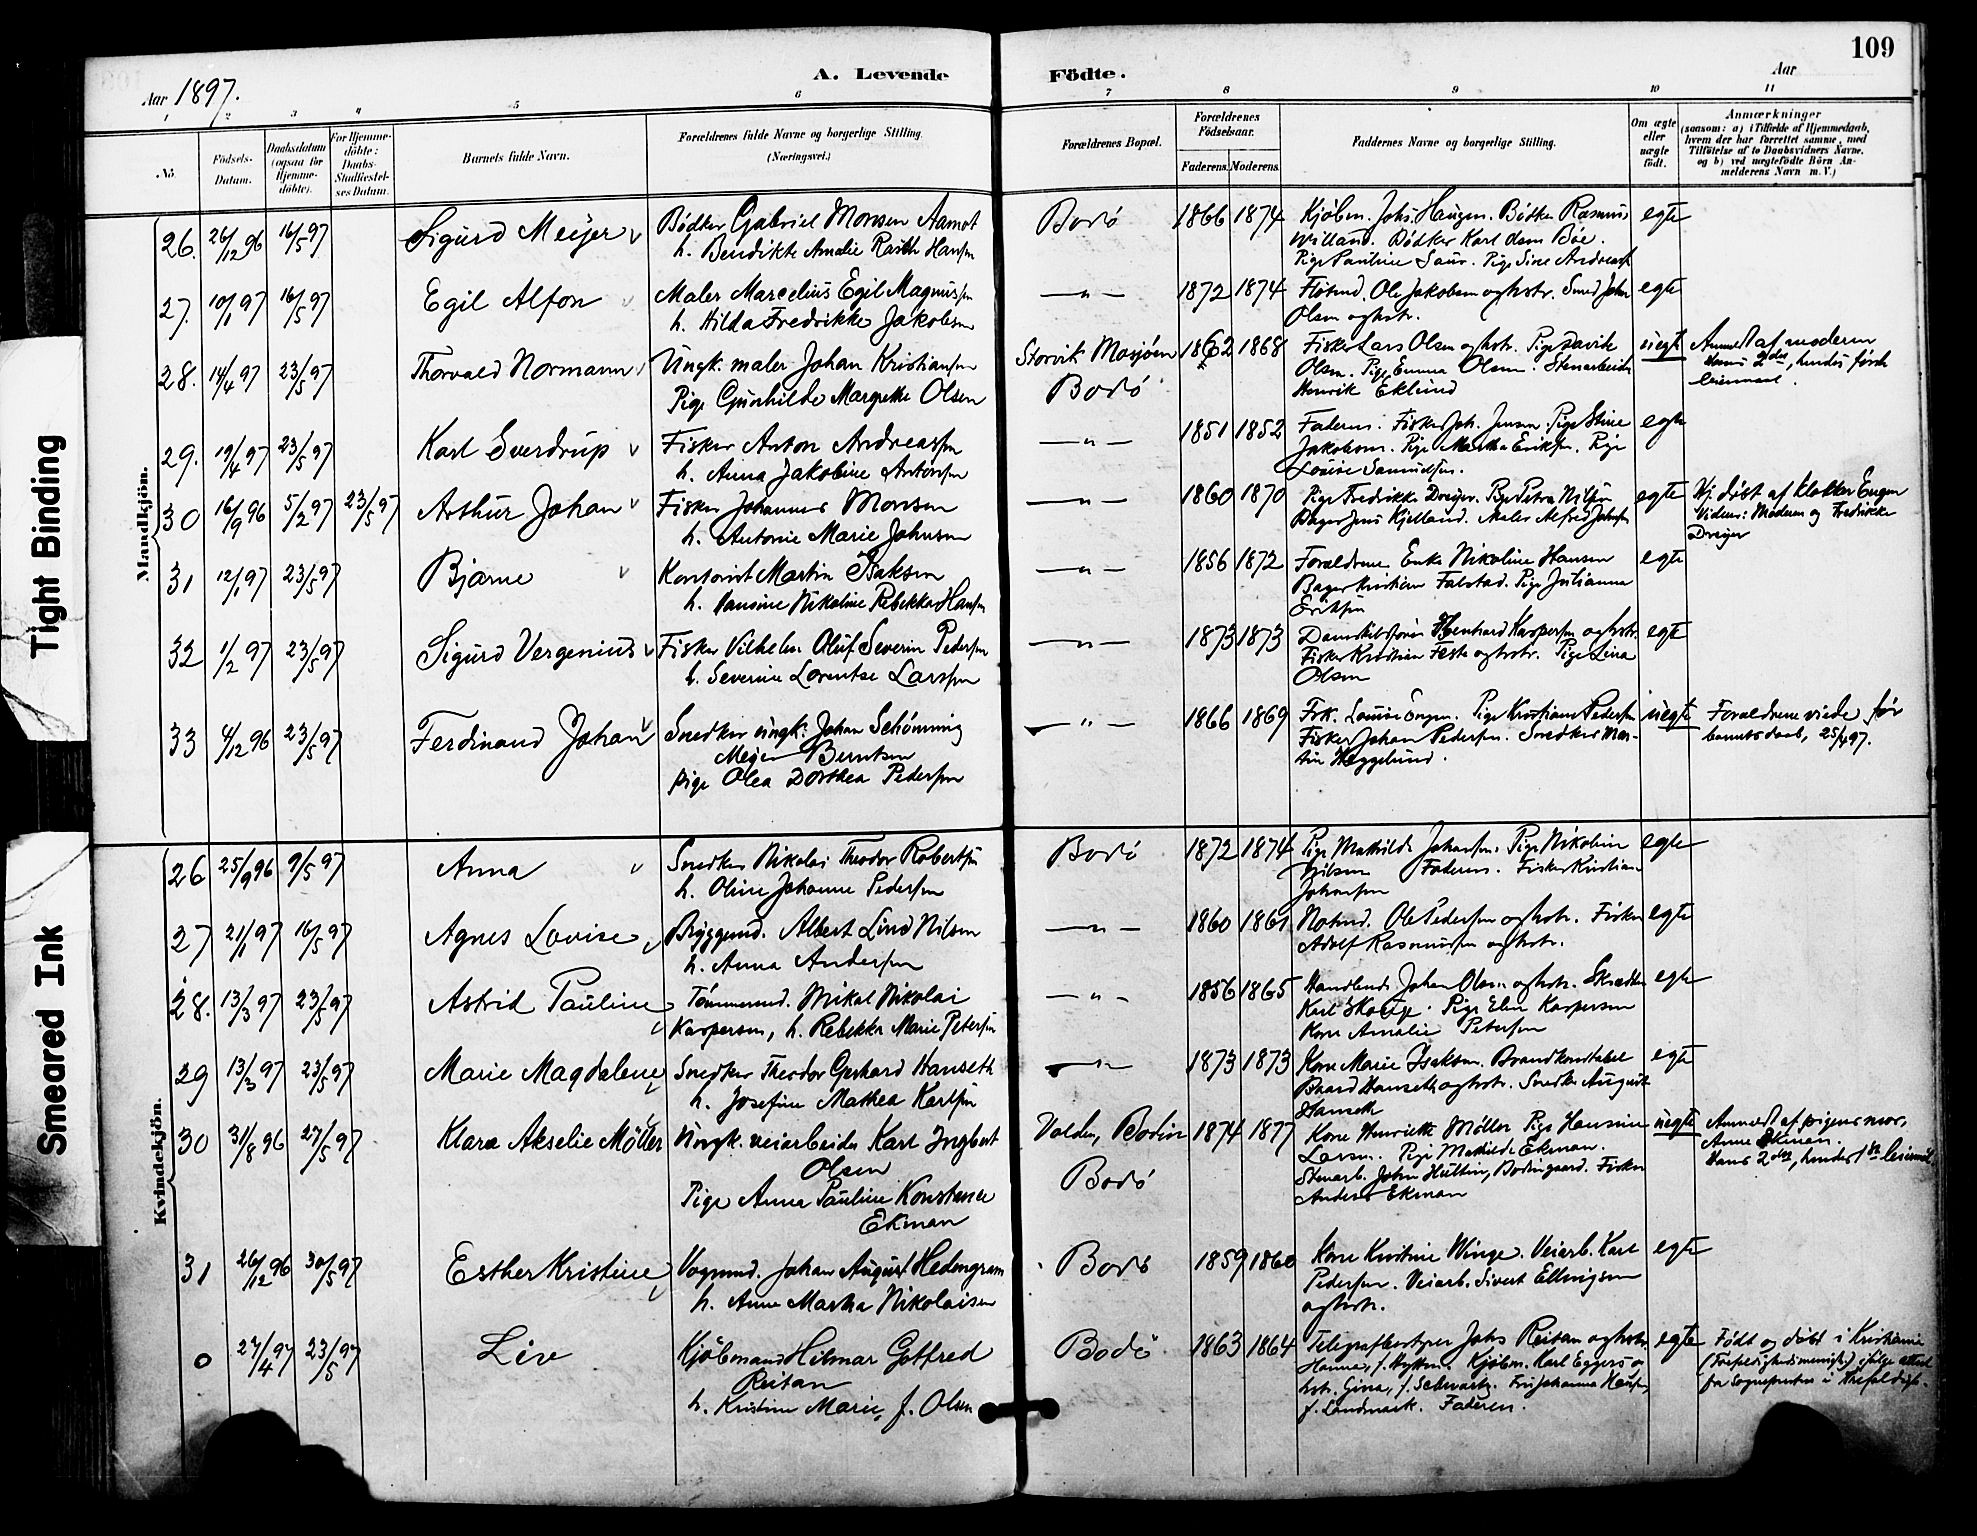 109
Aar 1897.
A. Levende Födte.
Aar
1 2 3 4 5 6 7 8 9 10 11
No.
Födsels-Datum.
Daabsdatum (ogsaa for Hjemme-döbte).
For Hjemme-döbte: Daabs-Stadfæstel-ses Datum.
Barnets fulde Navn.
Forældrenes fulde Navne og borgerlige Stilling. (Næringsvei.)
Forældrenes Bopæl.
Forældrenes Födselsaar.
Faderens. Moderens.
Faddernes Navne og borgerlige Stilling.
Om ægte eller uægte født.
Anmærkninger
(saasom: a) i Tilfælde af Hjemmedaab,
hvem der har forrettet samme, med
Tilføielse af to Daabsvidners Navne,
og b) ved uegtefödte Börn An-
melderens Navn m. V.)
Mandkjön.
26. 26/12 96 16/5 97 Sigurd Meijer Bødker Gabriel Monsen Aamot Bodø 1866 1874 Kjøbm. Johs. Haugen. Bödker Rasmus egte
h. Bendikte Amalie Hansen Willand. Bødker Karl Bøe.
Pige Pauline Pige Sine Andreasen
27. 10/1 97 16/5 97 Egil Alfon Maler Marcelius Egil Magnussen —"— 1872 1874 Ole Jakobsen oghstr. Smed John egte
h. Hilda Fredrikke Jakobsen Olsen oghstr.
28. 14/4 97 23/5 97 Thorvald Normann Ungk. maler Johan Kristiansen Storvik Mosjøen 1862 1868 Fisker Lars Olsen oghstr. Pige uegt Anmeldt af moderen
Pige Gunhilde Margrethe Olsen Bodø Olsen. Pige Emma Olsen. Stenarbeider hans 2det, hendes første
Henrik Eklund leiermaal.
29. 19/4 97 23/5 97 Karl Sverdrup Fisker Anton Andreassen —"— 1851 1852 Faderen. Fisker Joh. Jensen. Pige Stine egte
h. Anna Jakobine Antonsen Jakobsen. Pige Martha Eriksen. Pige
Louise Samuelsen.
30 16/9 96 5/2 97 23/5 97 Arthur Johan Fisker Johannes Monsen —"— 1860 1870 Pige Fredrikke Dreyer. Pige Petra Nilsen egte Hj. døbt af Klokker Enger
h. Antonie Marie Johnsen Bager Jens Kjelland. Maler Alfred Johnsen Vidner: Moderen og Fredrikke
Dreyer
31 12/1 97 23/5 97 Bjarne Kontorist Martin Isaksen —"— 1856 1872 Forældrene Enke Nikoline Hansen egte
h. Hansine Nikoline Rebekka Hansen Bager Kristian Falstad. Pige Julianna
Eriksen
32 1/2 97 23/5 97 Sigurd Vergenius Fisker Vilhelm Oluf Severin Pedersen —"— 1873 1873 Kaspersen oghstr. egte
h. Severine Lorentse Larssen Fisker Kristian Feste oghstr. Pige Lina
Olsen
33 4/12 96 23/5 97 Ferdinand Johan Snedker ungk: Johan Schönning —"— 1866 1869 Frk. Louise Enger. Pige Kristiane Pedersen uegte Forældrene viede før
Meyer Berntsen Fisker Johan Pedersen. Snedker Mar- barnets daab, 25/4 97.
pige Olea Dorthea Pedersen tin Heggelund.
Kvindekjön.
26 25/9 96 9/5 97 Anna Snedker Nikolai Theodor Robertsen Bodø 1872 1874 Pige Mathilde Johansen. Pige Nikoline egte
h. Oline Johanne Pedersen Nilsen Faderen. Fisker Kristian
Johansen
27 21/1 97 16/5 97 Agnes Lovise Bryggemd. Albert Lind Nilsen —"— 1860 1861 Notmd. Ole Pedersen oghstr. Fisker egte
h. Anna Andersen Adolf Rasmussen oghstr.
28. 13/3 97 23/5 97 Astrid Pauline Tömmermd. Mikal Nikolai —"— 1856 1865 Handlende Johan Olsen oghstr. Skrædder egte
Kaspersen, h. Rebekka Marie Petersen Karl Pige Elen Kaspersen
Kone Amalie Petersen
29 13/3 97 23/5 97 Marie Magdalene Snedker Theodor Gerhard Hanseth —"— 1873 1873 Kone Marie Isaksen. Brandkonstabel egte
h. Josefine Mathea Karlsen Baard Hanseth oghstr. Snedker August
Hanseth
30 31/8 96 27/5 97 Klara Akselie Möller Ungk. veiarbeider Karl Ingbert Valdes, Bodin 1874 1877 Kone Henriette Möller Pige Hansine uegte Anmeldt af pigens mor,
Olsen Larsen. Pige Mathilde Ekman. Anne Ekman.
Pige Anna Pauline Konstanse Bodø Stenarb. John Hultin, Bodingaard. Fisker Hans 2det, hendes 1ste leiermål
Ekman Anders Ekman
31 26/12 96 30/5 97 Esther Kristine Vognmd. Johan August Hedengran Bodø 1859 1860 Kone Kristine Winge. Veiarb. Karl egte
h. Anne Martha Nikolaisen Pedersen. Veiarb. Sivert Ellingsen
oghstr.
0 27/4 97 23/5 97 Liv Kjöbmand Hilmar Gotfred Bodø 1863 1864 Telegrafbestyrer Johs Reitan oghstr. egte Født og døbt i Kristiania
Reitan Hanna, f. Kjøbm. Karl Eggers og (Trefoldighedsmenigh.) ifølge attest
h. Kristine Marie, f. Olsen hstr. Gina, f. Schwartz. Fru Johanna Hansen, fra Sognepresten i Trefoldigh.
f. Landmark. Faderen.
Tight Binding
Smeared Ink